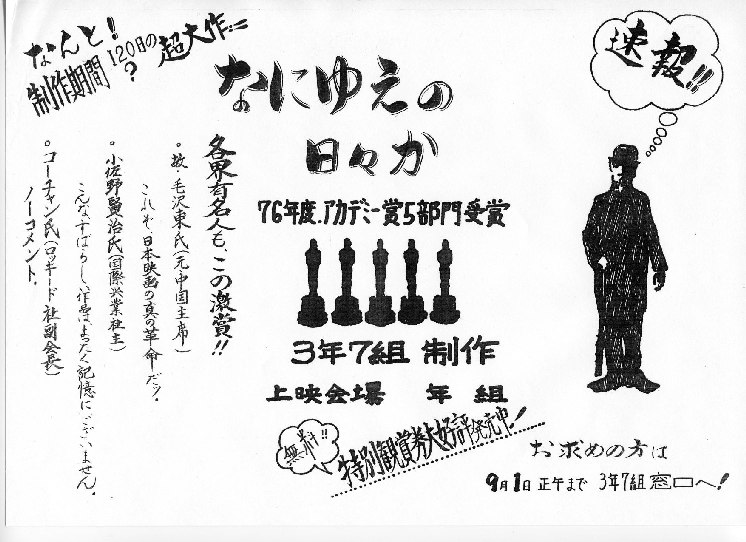 なんと!
制作期間120日の超大作!!
?
速報!!
なにゆえの
日々か
76年度.アカデミー賞5部門受賞
3年7組 制作
上映会場 年 組
各界有名人も、この激賞!!
故・毛沢東氏(元中国主席)
これぞ日本映画の真の革命だッ.
小佐野賢治氏(国際興業社主)
こんなすばらしい作品はまったく記憶にございません.
コーチャン氏(ロッキード社副会長)
ノーコメント.
無料!!
特別観賞券大好評発売中!
お求めの方は
9月1日 正午まで 3年7組 窓口へ!